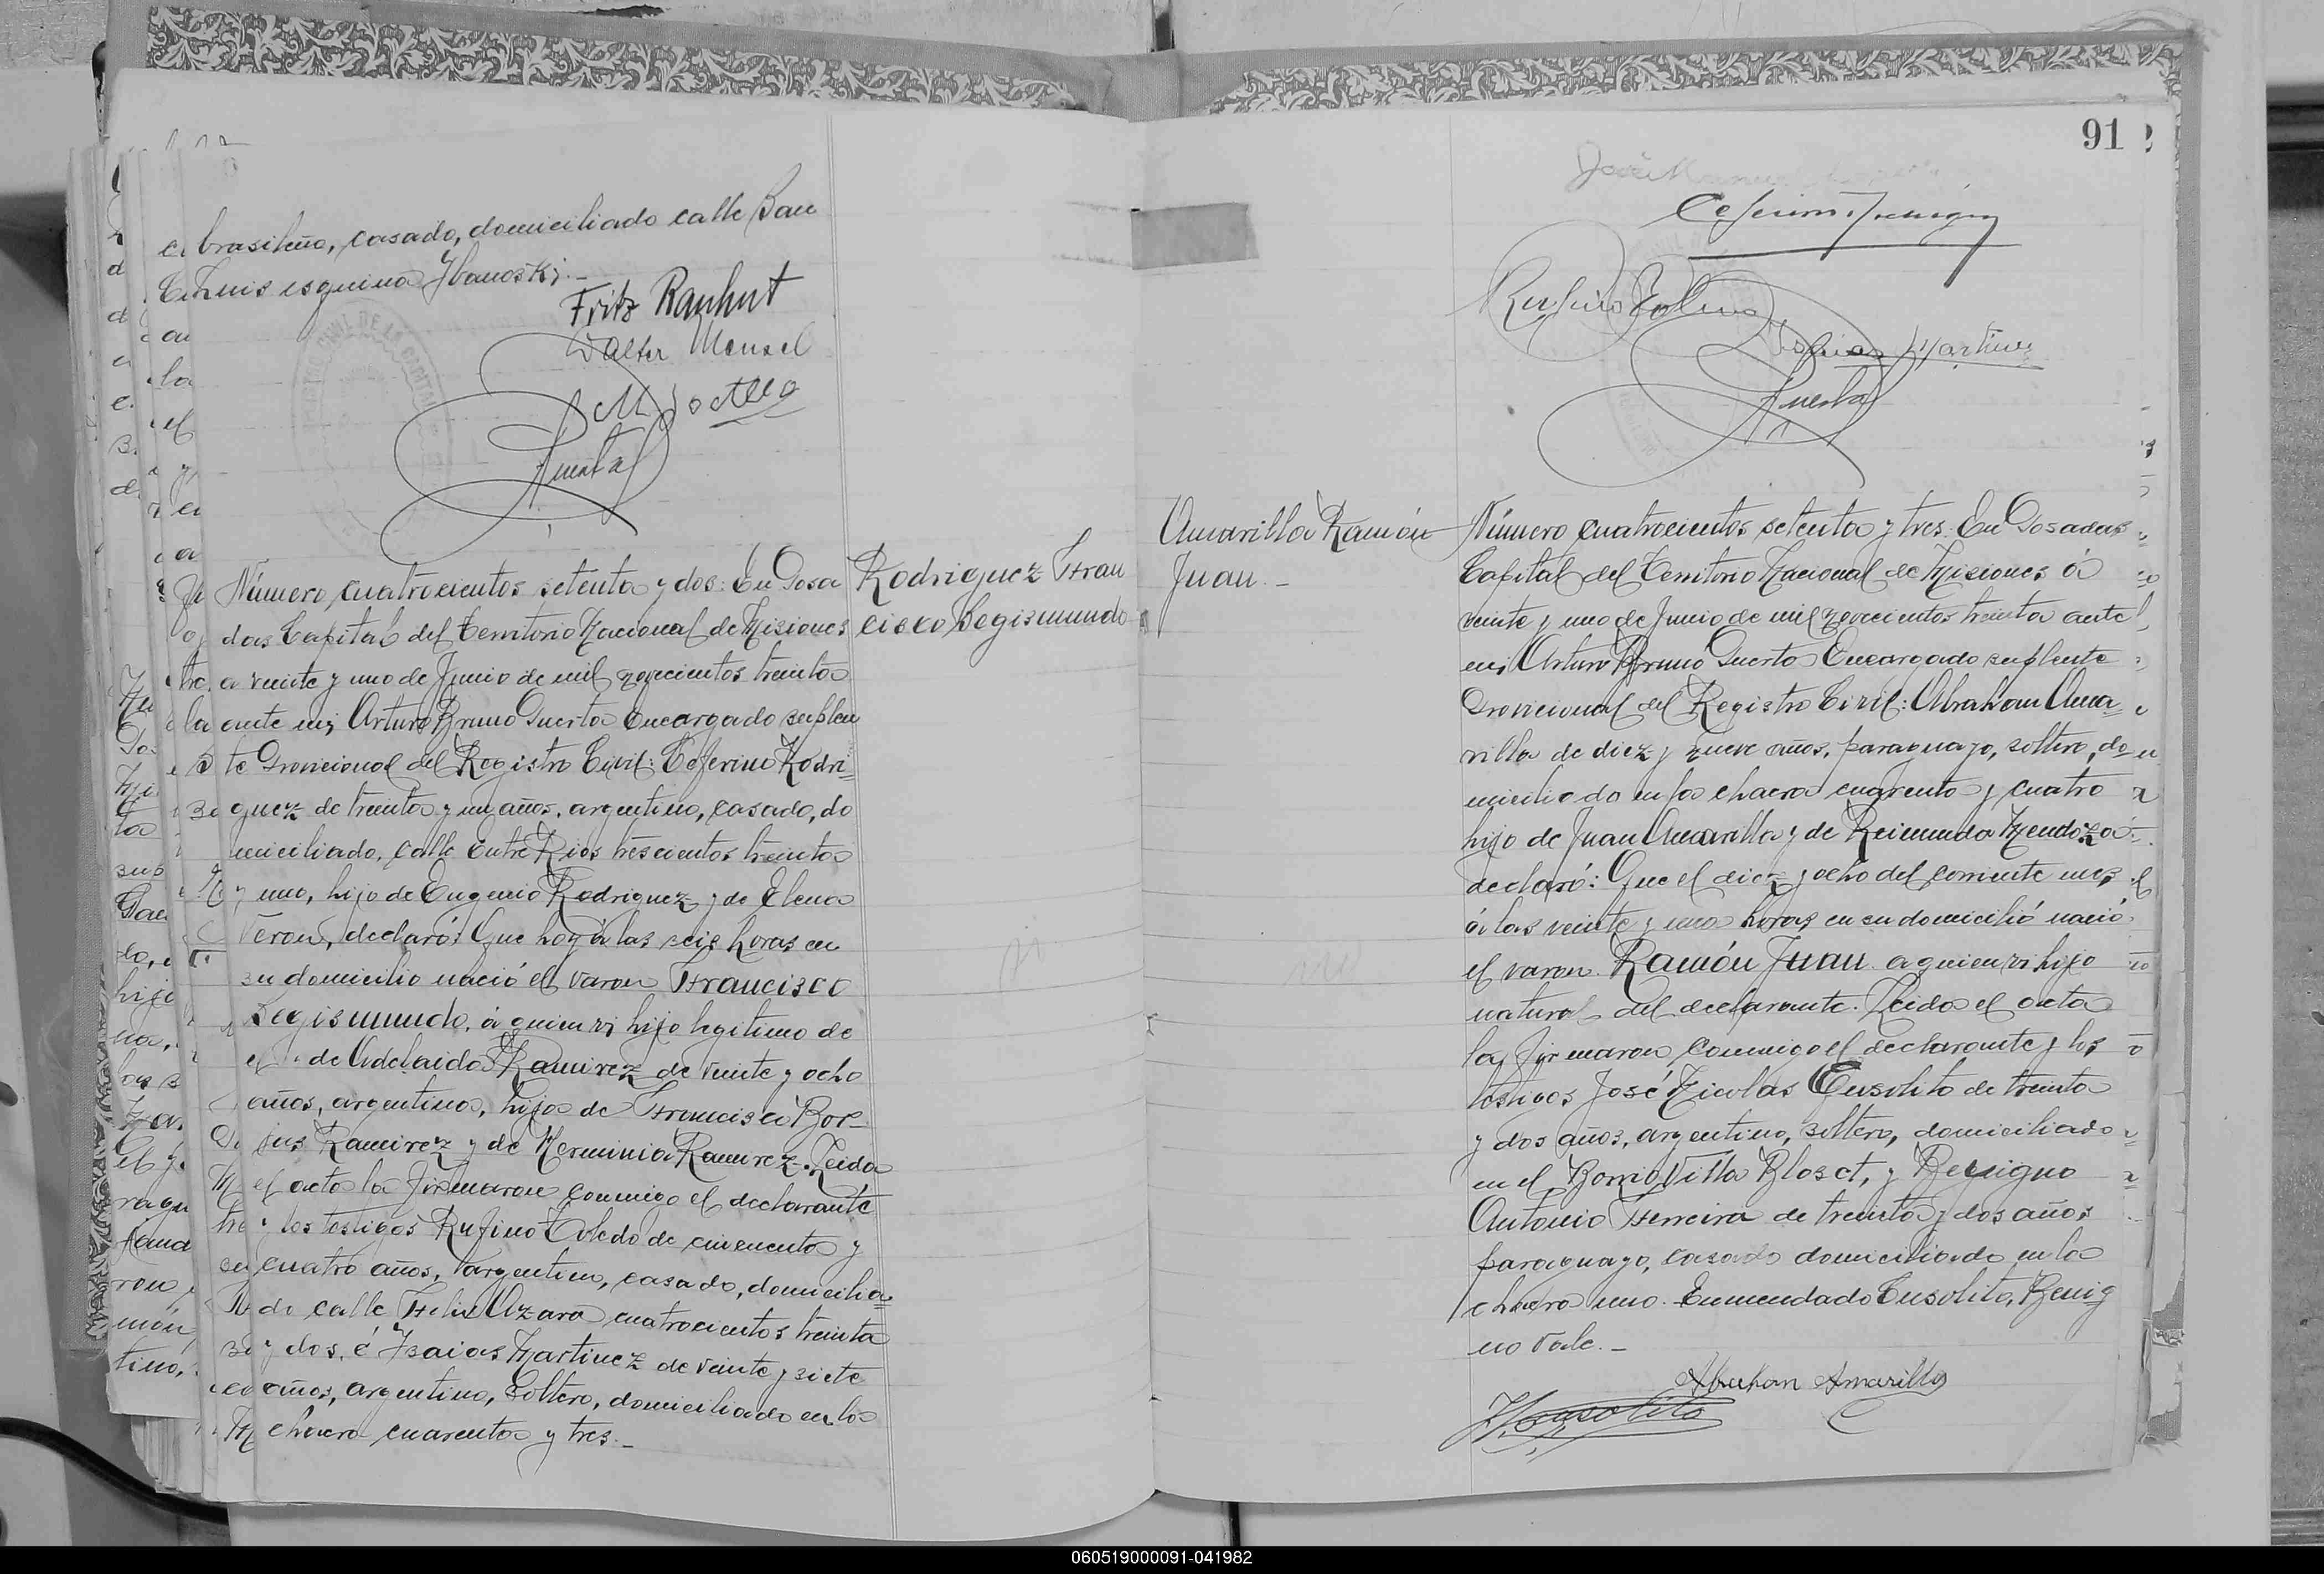 brasileño, casado, domiciliado calle San
Luis esquina Ibanoski.-
Fritz Rauhut
Walter Mensel
Puerta
Número cuatrocientos setenta y dos: En Posa
das Capital del Territorio Nacional de Misiones
a veinte y uno de Junio de mil novecientos treinta
ante mi, Arturo Bruno Puerta Encargado suplen
te Provicional del Registro Civil: Ceferino Rodri=
guez de treinta y un años, argentino, casado, do
miciliado, calle Entre Rios trescientos treinta
y uno, hijo de Eugenio Rodriguez y de Elena
Veron, declaró: Que hoy á las seis horas en
su domicilio nació el varon Francisco
Segismundo, á quien vi hijo legitimo de
el y de Adelaida Ramirez de veinte y ocho
años, argentina, hija de Francisco Bor
jas Ramirez y de Herminia Ramirez. Leida
el acta la firmaron conmigo el declarante
y los testigos Rufino Toledo de cincuenta y
cuatro años, argentino, casado, domicilia=
do calle Felix Azara cuatrocientos treinta
y dos, é Isaias Martinez de veinte y siete
años, argentino, soltero, domiciliado en la
chacra cuarenta y tres.-
Rodriguez Fran
cisco Segismundo
91
Amarilla Ramón
Juan.-
Isaias Martinez
Puerta
Número cuatrocientos setenta y tres. En Posadas
Capital del Territorio Nacional de Misiones á
veinte y uno de Junio de mil novecientos treinta ante
mi, Arturo Bruno Puerta Encargado suplente
Provicional del Registro Civil: Abrahan Ama=
rilla de diez y nueve años, paraguayo, soltero, do
miciliado en la chacra cuarenta y cuatro
hijo de Juan Amarilla y de Reimunda Mendoza
declaró: Que el diez y ocho del corriente mes
á las veinte y una horas en su domicilió nació
el varon Ramón Juan a quien vi hijo
natural del declarante. Leida el acta
la firmaron conmigo el declarante y los
testigos José Nicolas Cusolito de treinta
y dos años, argentino, soltero, domiciliado
en el Barrio Villa Bloset, y Benigno
Antonio Ferreira de treinta y dos años
paraguayo, casado domiciliado en la
chacra uno. Enmendado Cusolito, Benig
no Vale.-
Abrahan Amarilla
060519000091-041982